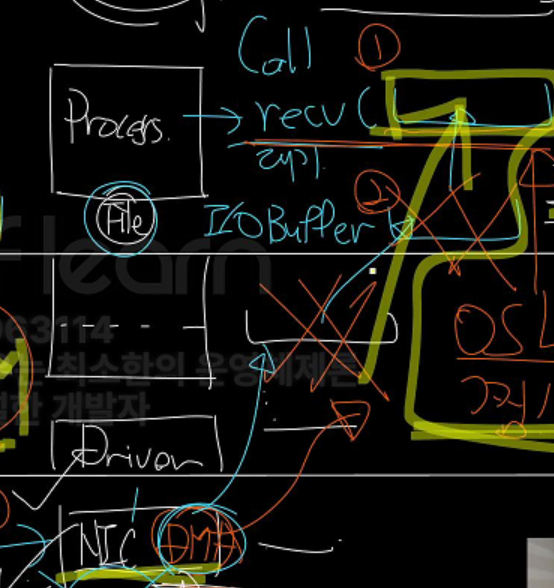 Call ①
Process. → recv (
File
② I/O Buffer
flearn
063114
최소한의 운영체제론
개발자
OS
Driver
NIC DMA